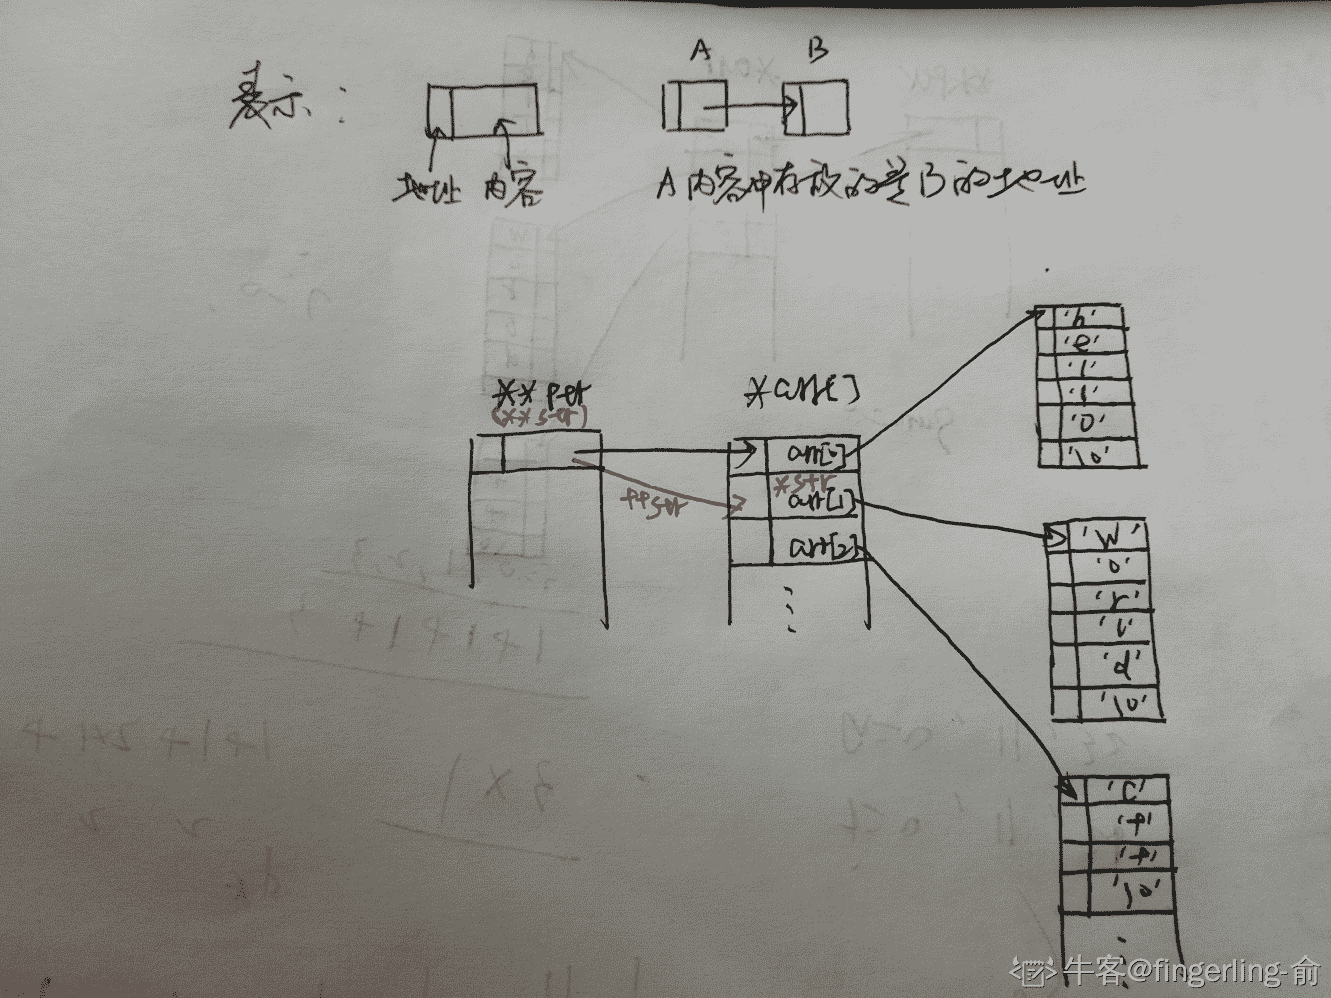 表示：
A
B
地址
内容
A内容中存放的是B的地址
**ptr
(**str)
*arr[]
arr[0]
*str
arr[1]
arr[2]
++str
'h'
'e'
'l'
'l'
'o'
'\0'
'w'
'o'
'r'
'l'
'd'
'\0'
'C'
'+'
'+'
'\0'
牛客@fingerling-俞